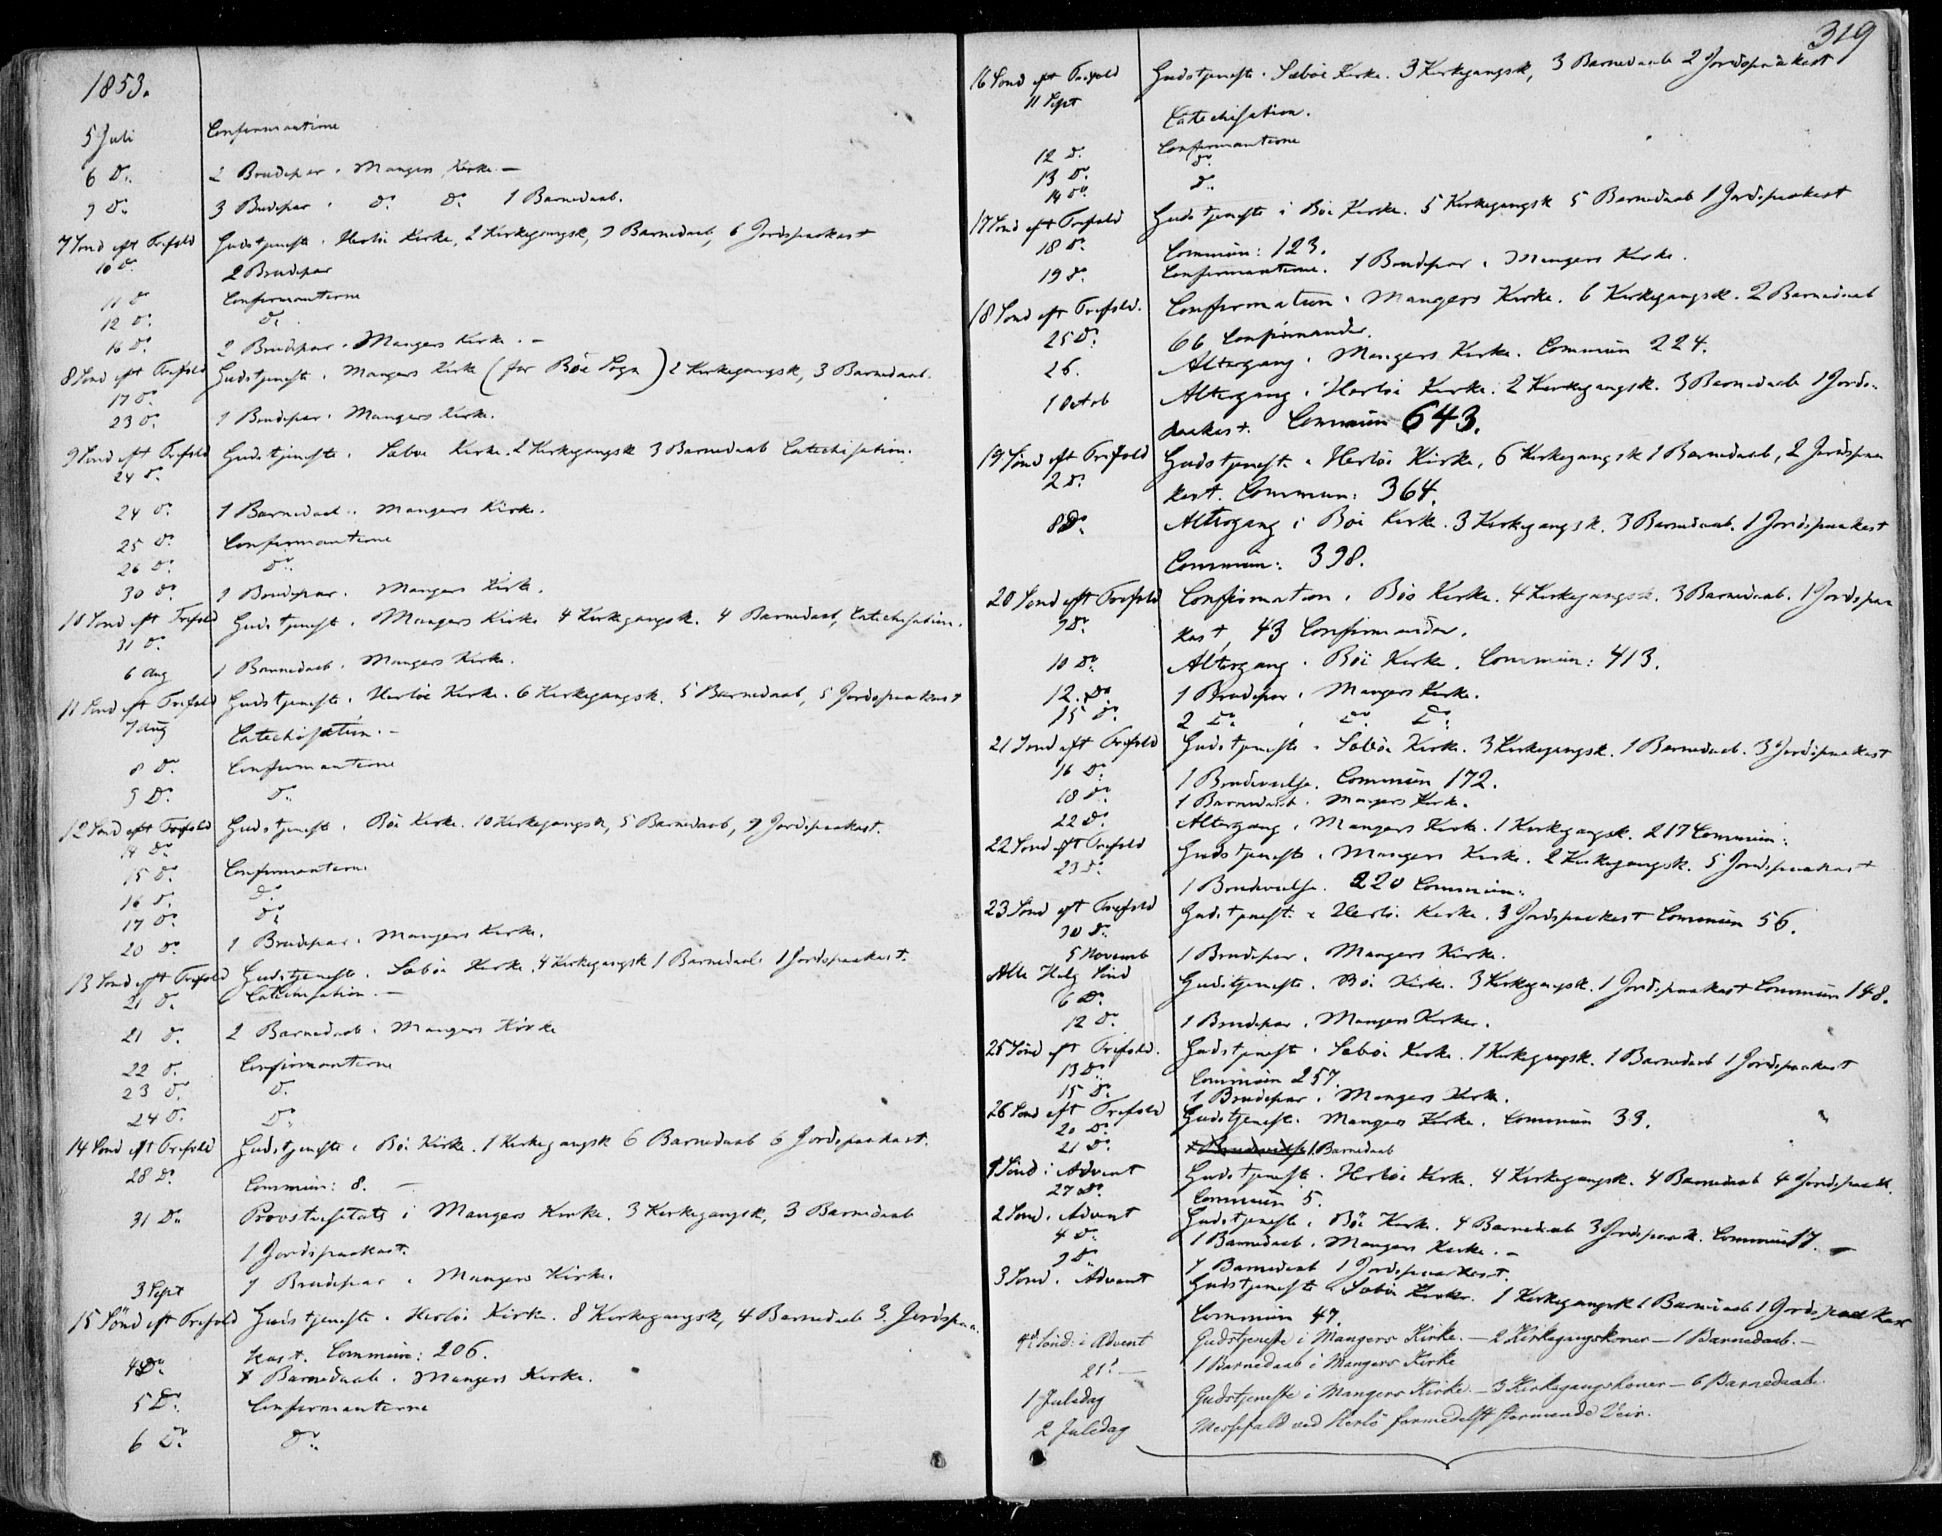 1853.
5 Juli Confirmanterne
6 D: 2 Brudepar i Mangers Kirke. —
9 D: 3 Brudepar i D: D: 1 Barnedaab.
7 Sönd eft Trefold Gudstjeneste i Herlöe Kirke, 2 Kirkegangsk, 9 Barnedaab, 6 Jordspaakast
10 D: 2 Brudepar
11 D: Confirmanterne
12 D: D:
16 D: 2 Brudepar i Mangers Kirke. —
8 Sönd eft Trefold Gudstjeneste i Mangers Kirke (for Böe Sogn) 2 Kirkegangsk, 3 Barnedaab.
17 D:
23 D: 1 Brudepar i Mangers Kirke.
9 Sönd eft Trefold Gudstjeneste i Sæboe Kirke. 2 Kirkegangsk 3 Barnedaab Catechisation.
24 D:
24 D: 1 Barnedaab i Mangers Kirke.
25 D: Confirmanterne
26 D: D:
30 D: 1 Brudepar i Mangers Kirke.
10 Sönd eft Trefold Gudstjeneste i Mangers Kirke 4 Kirkegangsk. 4 Barnedaab, Catechisation.
31 D:
6 Aug 1 Barnedaab i Mangers Kirke.
11 Sönd eft Trefold Gudstjeneste i Herlöe Kirke. 6 Kirkegangsk. 5 Barnedaab, 5 Jordspaakast
7 Aug Catechisation. —
8 D: Confirmanterne
9 D: D:
12 Sönd eft Trefold Gudstjeneste i Böe Kirke. 10 Kirkegangsk, 5 Barnedaab, 9 Jordspaakast.
14 D:
15 D: Confirmanterne
16 D: D:
17 D: D:
20 D: 1 Brudepar i Mangers Kirke.
13 Sönd eft Trefold Gudstjeneste i Sæböe Kirke. 4 Kirkegangsk 1 Barnedaab 1 Jordspaakast.
21 D: Catechisation. —
21 D: 2 Barnedaab i Mangers Kirke
22 D: Confirmanterne
23 D: D:
24 D: D:
14 Sönd eft Trefold Gudstjeneste i Böe Kirke. 1 Kirkegangsk 6 Barnedaab 6 Jordspaakast.
28 D: Commun: 8. —
31 D: Provstevisitats i Mangers Kirke. 3 Kirkegangsk, 3 Barnedaab
1 Jordspaakast.
3 Sept 1 Brudepar i Mangers Kirke.
15 Sönd eft Trefold Gudstjeneste i Herlöe Kirke. 8 Kirkegangsk, 4 Barnedaab 3 Jordspaa-
4 D: kast. Commun: 206.
1 Barnedaab i Mangers Kirke.
5 D: Confirmanterne
6 D: D:
319
16 Sönd eft Trefold Gudstjeneste i Sæböe Kirke. 3 Kirkegangsk, 3 Barnedaab 2 Jordspaakast
11 Sept Catechisation.
12 D: Confirmanterne
13 D: D:
14 D: D:
17 Sönd eft Trefold Gudstjeneste i Böe Kirke. 5 Kirkegangsk 5 Barnedaab 1 Jordspaakast
18 D: Commun: 123.
19 D: Confirmanterne. 1 Brudepar i Mangers Kirke.
18 Sönd eft Trefold. Confirmation i Mangers Kirke. 6 Kirkegangsk. 2 Barnedaab
25 D: 66 Confirmander.
26. Altergang i Mangers Kirke. Commun 224.
1 Octob Altergang i Herlöe Kirke. 2 Kirkegangsk. 3 Barnedaab 1 Jords-
paakast. Commun 643.
19 Sönd eft Trefold Gudstjenest. i Herlöe Kirke, 6 Kirkegangsk 1 Barnedaab, 2 Jordspaa
2 D: kast. Commun: 364.
8 D: Altergang i Böe Kirke. 3 Kirkegangsk. 3 Barnedaab. 1 Jordspaakast
Commun: 398.
20 Sönd eft Trefold Confirmation i Böe Kirke. 4 Kirkegangsk. 3 Barnedaab. 1 Jordspaa
9 D: kast, 43 Confirmander.
10 D: Altergang i Böe Kirke. Commun: 413.
12. D: 1 Brudepar i Mangers Kirke.
15 D: 2 D: i D: D:
21 Sönd eft Trefold Gudstjeneste i Sæböe Kirke. 3 Kirkegangsk. 1 Barnedaab. 3 Jordspaakast
16 D: 1 Brudevielse. Commun 172.
18 D: 1 Barnedaab i Mangers Kirke.
22 D: Altergang i Mangers Kirke. 1 Kirkegangsk. 217 Commun:
22 Sönd eft Trefold Gudstjeneste i Mangers Kirke. 2 Kirkegangsk. 5 Jordspaakast
23 D: 1 Brudevielse. 220 Commun:
23 Sönd eft Trefold Gudstjenest. i Herlöe Kirke. 3 Jordspaakast Commun 56.
30 D:
5 Novemb 1 Brudepar i Mangers Kirke.
Alle Helg Sönd Gudstjeneste i Böe Kirke. 3 Kirkegangsk. 1 Jordspaakast Commun 148.
6 D:
12 D: 1 Brudepar i Mangers Kirke.
25 Sönd eft Trefold. Gudstjeneste i Sæböe Kirke. 1 Kirkegangsk. 1 Barnedaab 1 Jordspaakast
13 D: Commun 257.
15 D: 1 Brudepar i Mangers Kirke.
26 Sönd eft Trefold Gudstjeneste Mangers Kirke. Commun 39.
20 D:
21 D: 1 Barnedaab
1 Sönd i Advent Gudstjeneste i Herlöe Kirke. 4 Kirkegangsk. 4 Barnedaab 4 Jordspaak.
27 D: Commun 5.
2 Sönd i Advent Gudstjeneste i Böe Kirke. 4 Barnedaab 3 Jordspaak. Commun 17. —
4 D: 1 Barnedaab i Mangers Kirke. —
9 D: 1 Barnedaab 1 Jordspaakast.
3 Sönd i Advent Gudstjeneste i Sæböe Kirke. 1 Kirkegangsk 1 Barnedaab 1 Jordspaakast
Commun 47.
4d Sönd: i Advent Gudstjeneste i Mangers Kirke. — 2 Kirkegangskoner — 1 Barnedaab. —
21d — 1 Barnedaab i Mangers Kirke
1 Juledag Gudstjeneste i Mangers Kirke. — 3 Kirkegangskoner — 6 Barnedaab.
2 Juledag Messefald ved Herlö formedelst stormende Veir.